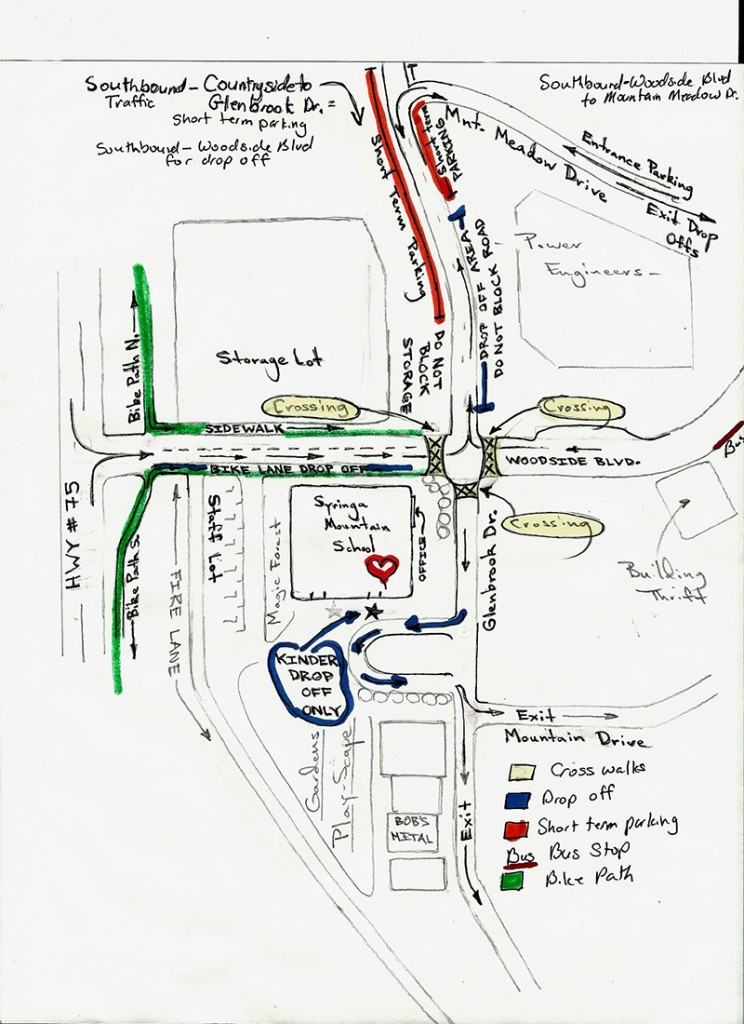 Southbound - Countryside to
Traffic Glenbrook Dr. =
Short term parking
Southbound - Woodside Blvd
for drop off
Southbound-Woodside Blvd
to Mountain Meadow Dr.
Short Term Parking
Short term
PARKING
Mnt. Meadow Drive
Entrance Parking
Exit Drop
Offs
DROP OFF AREA
DO NOT BLOCK ROAD
Power
Engineers
Storage Lot
DO NOT
BLOCK
STORAGE
Bike Path N.
Crossing
Crossing
SIDEWALK
BIKE LANE DROP OFF
WOODSIDE BLVD.
Bus
HWY # 75
Staff Lot
Magic Forest
Syringa
Mountain
School
OFFICE
Crossing
Glenbrook Dr.
Building
Thrift
Bike Path S.
FIRE LANE
KINDER
DROP
OFF
ONLY
Exit
Mountain Drive
Gardens
Play-Scape
BOB'S
METAL
Exit
Cross walks
Drop off
Short term parking
Bus Bus Stop
Bike Path